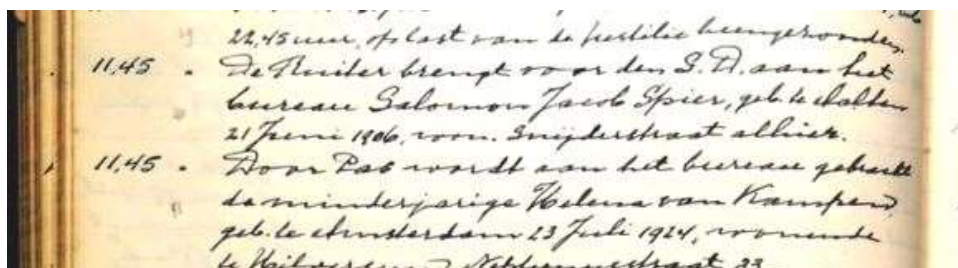 22,45 uur, op last van de justitie heengezonden.
11,45 " De Ruiter brengt voor den S.D. aan het
bureau Salomon Jacob Spier, geb. te Aalten
21 Juni 1906, won. Snijderstraat alhier.
11,45 " Door Pas wordt aan het bureau gebracht
de minderjarige Helena van Kampen,
geb. te Amsterdam 23 Juli 1924, wonende
te Hilversum 33